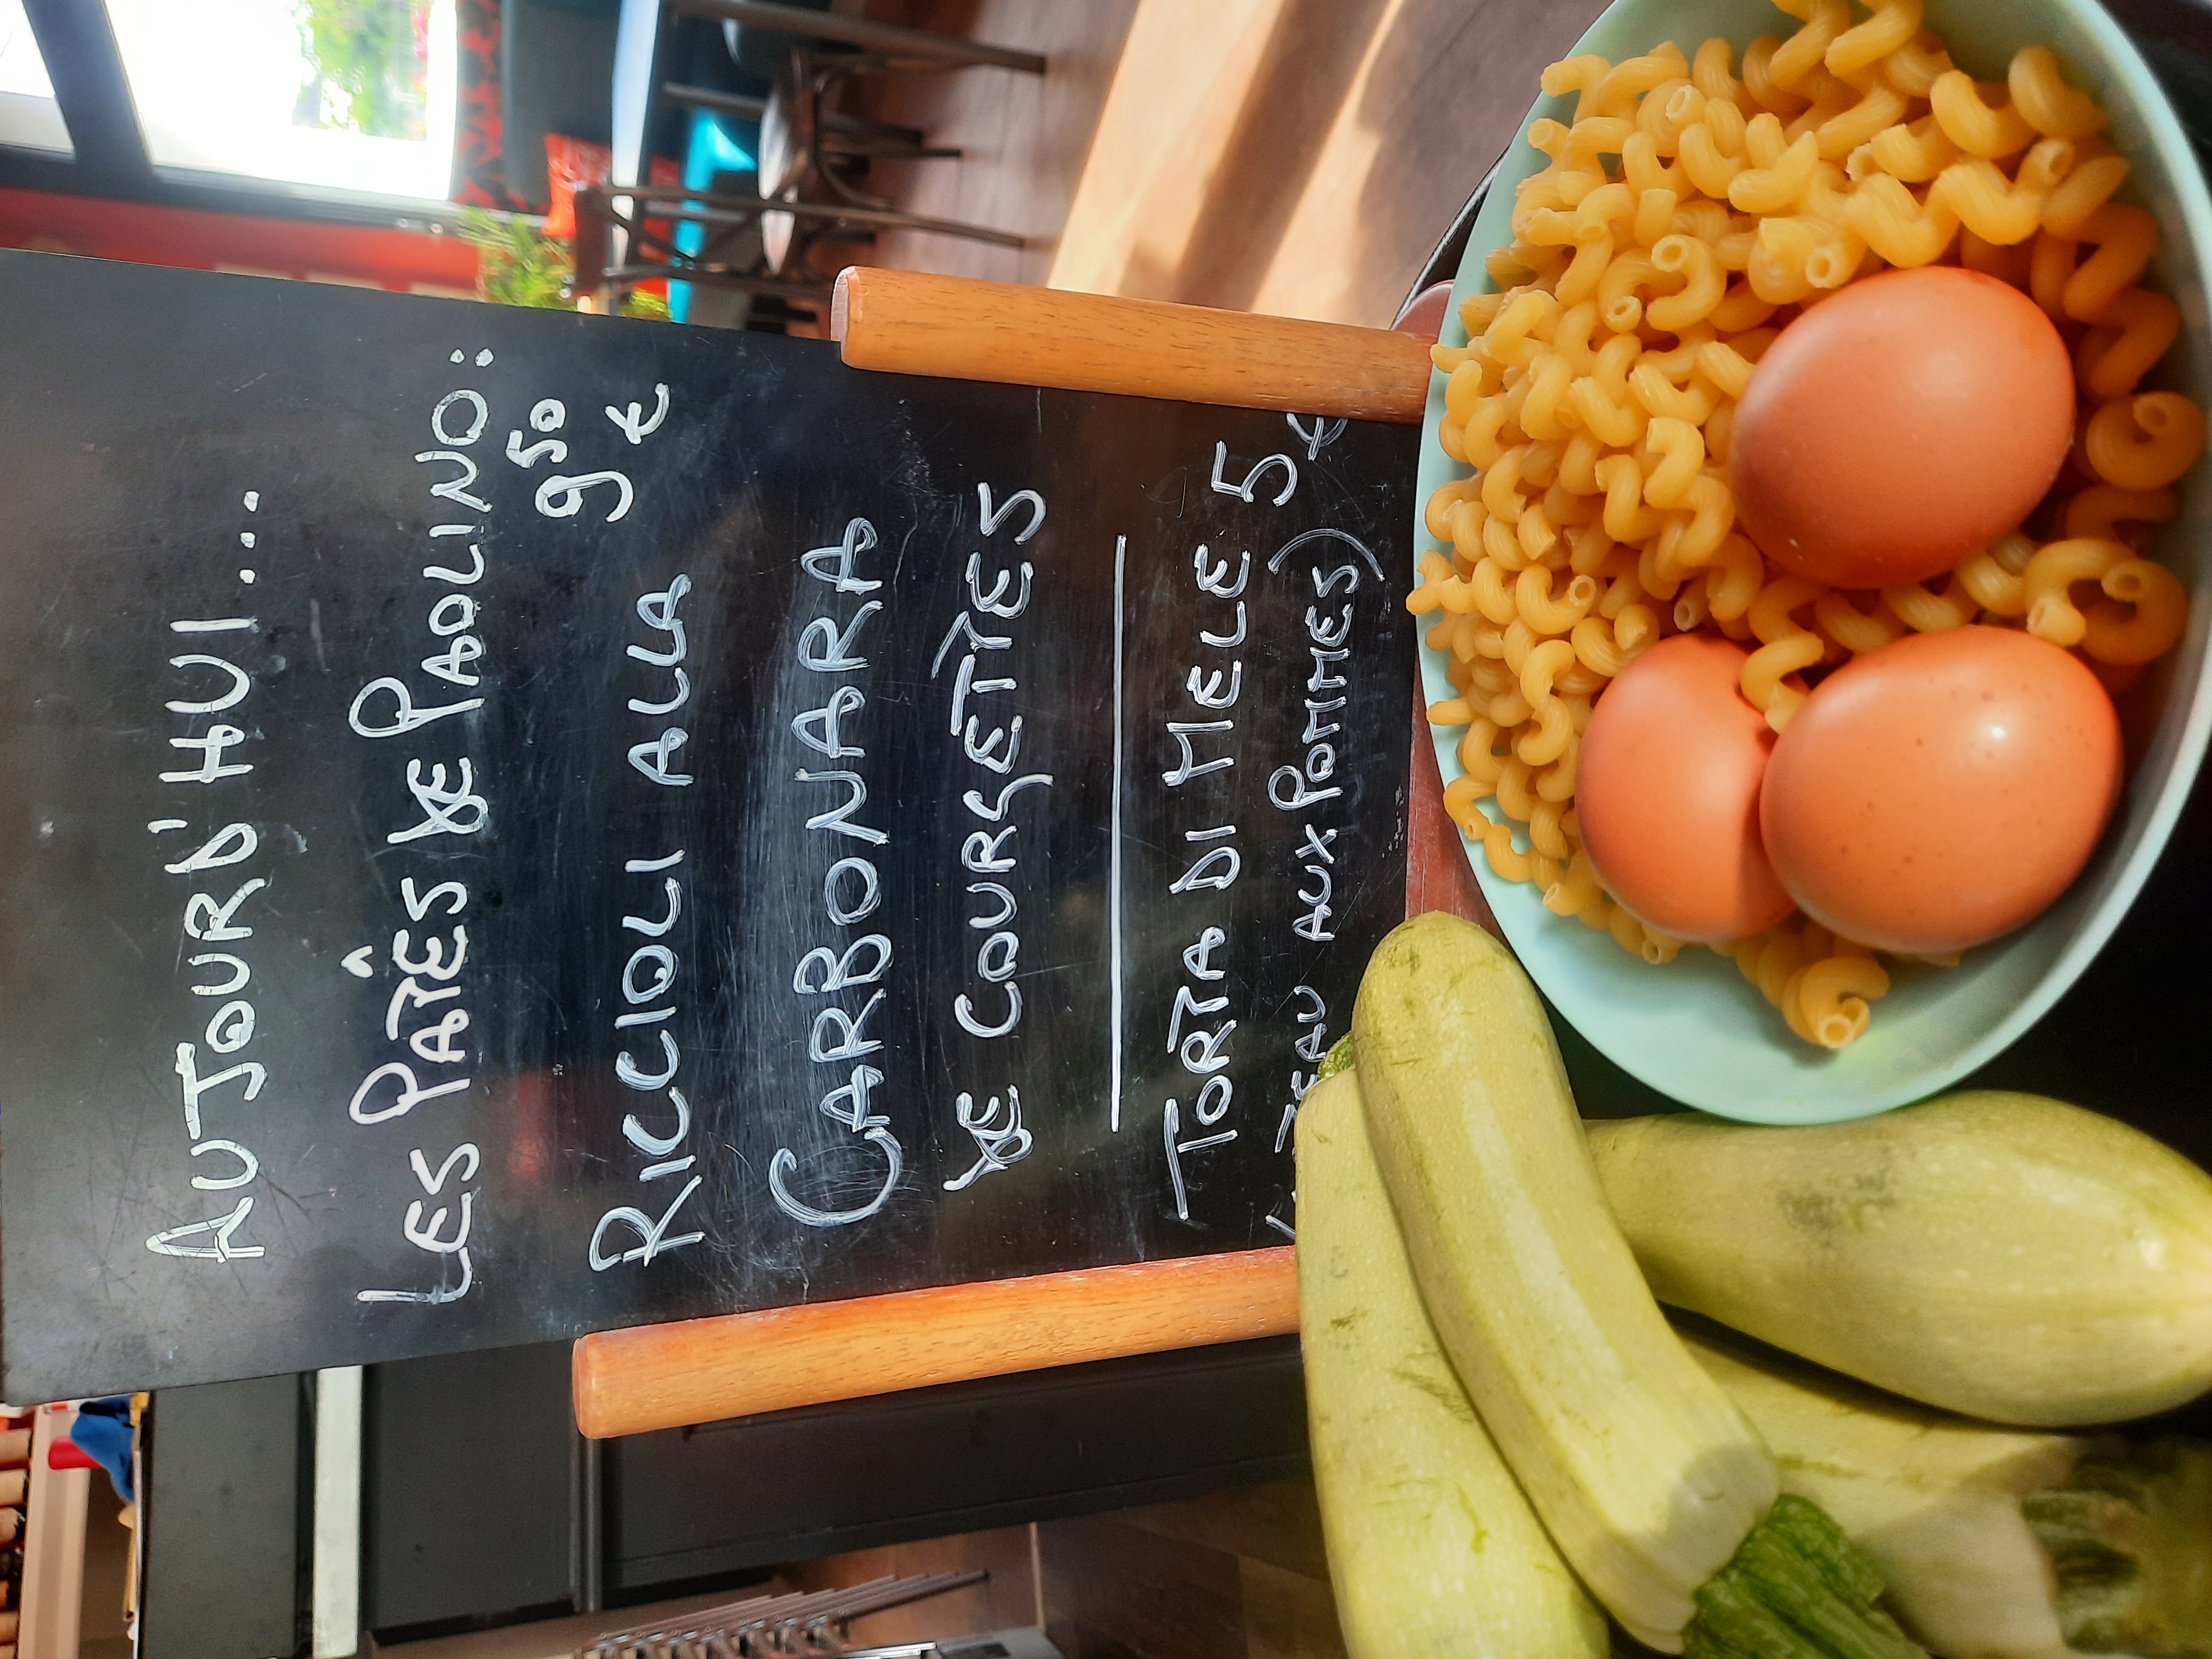 AUJOURD'HUI...
LES PATÊS DE PAOLINO:
9,50 €
RICCIOLI ALLA
CARBONARA
DE COURGETTES
TORTA DI MELE 5 €
AUX POMMES)